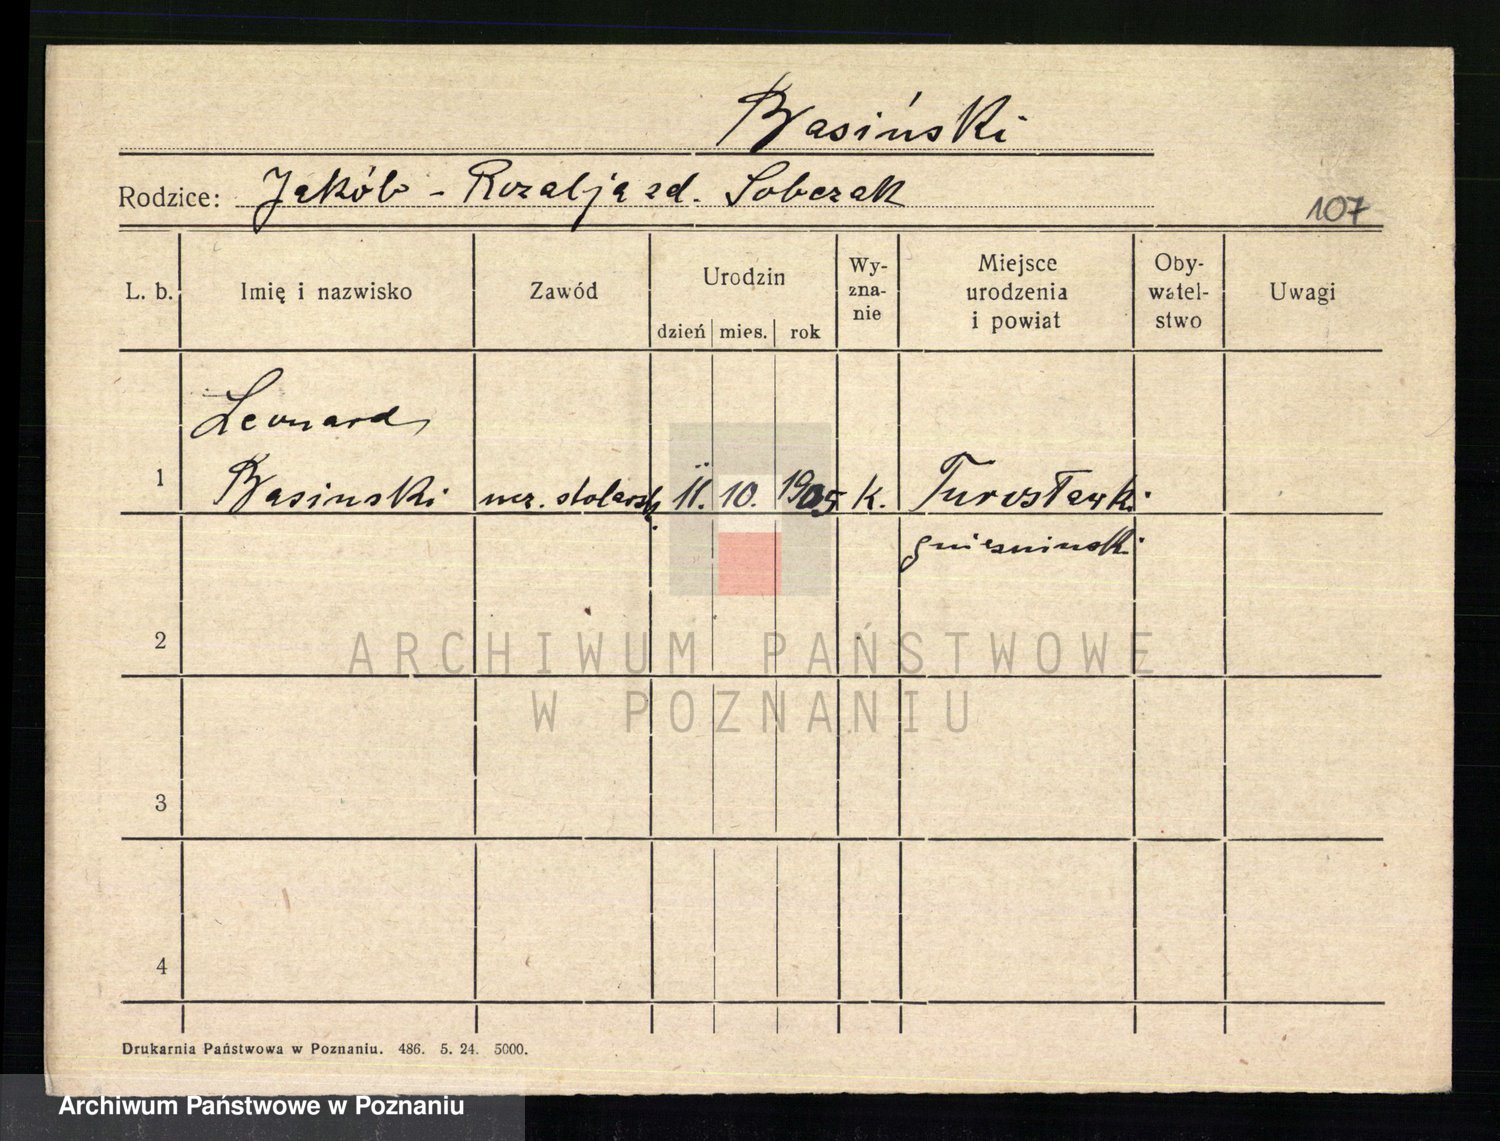 Basiński
Rodzice: Jakób - Rozalja zd. Sobczak
107
L. b. Imię i nazwisko Zawód Urodzin dzień mies. rok Wy-zna-nie Miejsce urodzenia i powiat Oby-watel-stwo Uwagi
Leonard
1 Basinski ucz. stolarsk. 11. 10. 1905 k. Turostowki
gniezninski
2
ARCHIWUM PAŃSTWOWE
W POZNANIU
3
4
Drukarnia Państwowa w Poznaniu. 486. 5. 24. 5000.
Archiwum Państwowe w Poznaniu